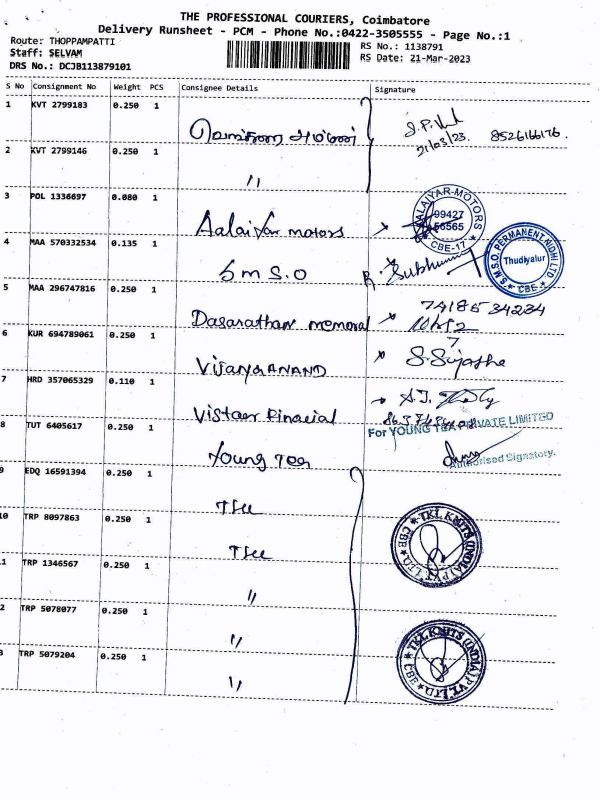 THE PROFESSIONAL COURIERS, Coimbatore
Delivery Runsheet - PCM - Phone No.:0422-3505555 - Page No.:1
Route: THOPPAMPATTI
Staff: SELVAM
DRS No.: DCJB113879101
RS No.: 1138791
RS Date: 21-Mar-2023
S No Consignment No Weight PCS Consignee Details Signature
1 KVT 2799183 0.250 1
21/03/23. 8526166176.
2 KVT 2799146 0.250 1
"
3 POL 1336697 0.080 1
Aalaiyar motors
AALAIYAR-MOTORS
99427
56565
CBE-17
4 MAA 570332534 0.135 1
S m S.O
R. Subhu
S.M.S.O. PERMANENT NIDHI LTD
Thudiyalur
CBE
5 MAA 296747816 0.250 1
Dasarathan memorial
74185 34234
6 KUR 694789061 0.250 1
VijayaANAND
S. Sujatha
7 HRD 357065329 0.110 1
Vistaar Financial
8 TUT 6405617 0.250 1
Young Tea
For YOUNG TEA PRIVATE LIMITED
Authorised Signatory.
9 EDQ 16591394 0.250 1
10 TRP 8097863 0.250 1
TKL KNITS (INDIA) PVT. LTD.
CBE
11 TRP 1346567 0.250 1
"
12 TRP 5078077 0.250 1
"
13 TRP 5079204 0.250 1
"
TKL KNITS (INDIA) PVT. LTD
CBE